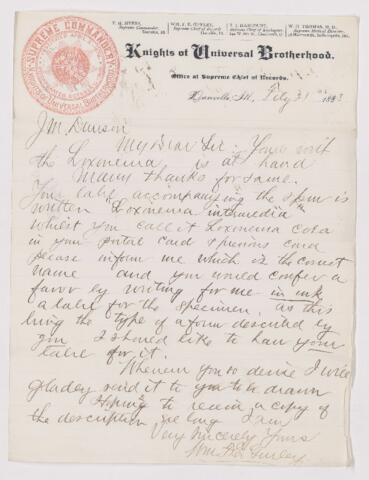 SUPREME COMMANDERY
KNIGHTS OF UNIVERSAL BROTHERHOOD
Supreme Commander
Supreme Chief of Records
Supreme Medical Director
Knights of Universal Brotherhood.
Office of Supreme Chief of Records.
Danville, Ill., 1883
J W Dawson
My Dear Sir: Yours with
the Loxonema is at hand
Many thanks for same.
Your label accompanying the spm is
written "Loxonema intimedia"
whilst you call it Loxonema cara
in your postal card & previous card
please inform me which is the correct
name and you would confer a
favor by writing for me in ink
a label for the specimen, as this
being the type of a form described by
you I should like to have your
label for it.
Whenever you so desire I will
gladly send it to you to be drawn
Hoping to receive a copy of
the description ere long I am
Very Sincerely Yours
Wm. F. E. Gurley